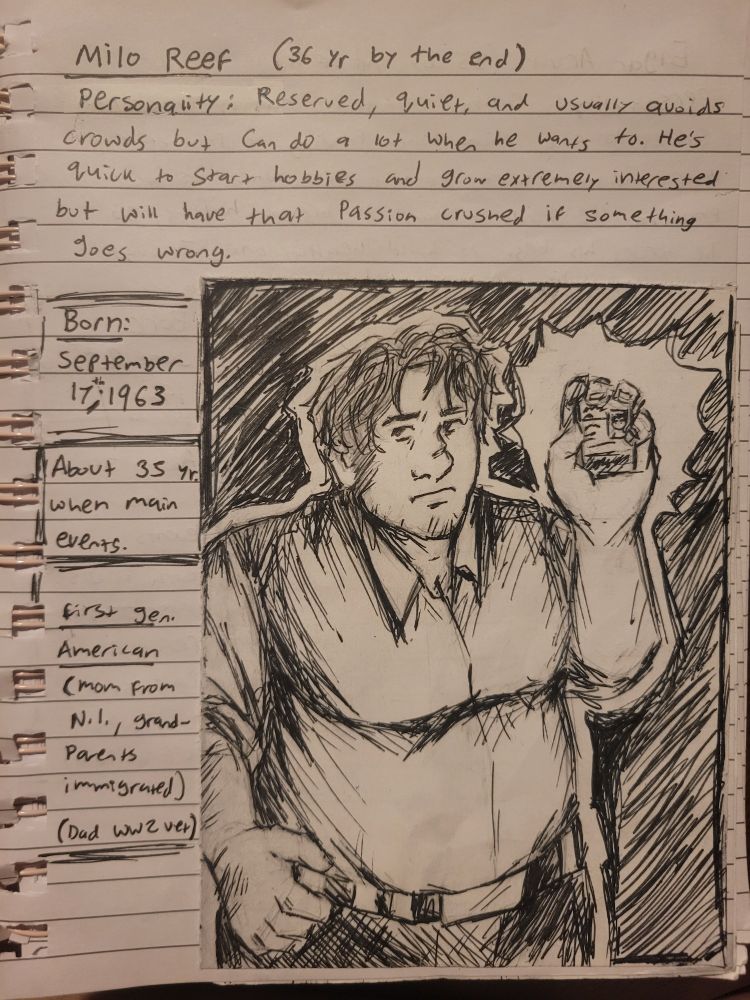 Milo Reef (36 yr by the end)
Personality: Reserved, quiet, and usually avoids
crowds but can do a lot when he wants to. He's
quick to start hobbies and grow extremely interested
but will have that passion crushed if something
goes wrong.
Born:
September
17th, 1963
About 35 yr.
when main
events.
First gen.
American
(mom from
N.I., grand-
parents
immigrated)
(Dad WW2 vet)